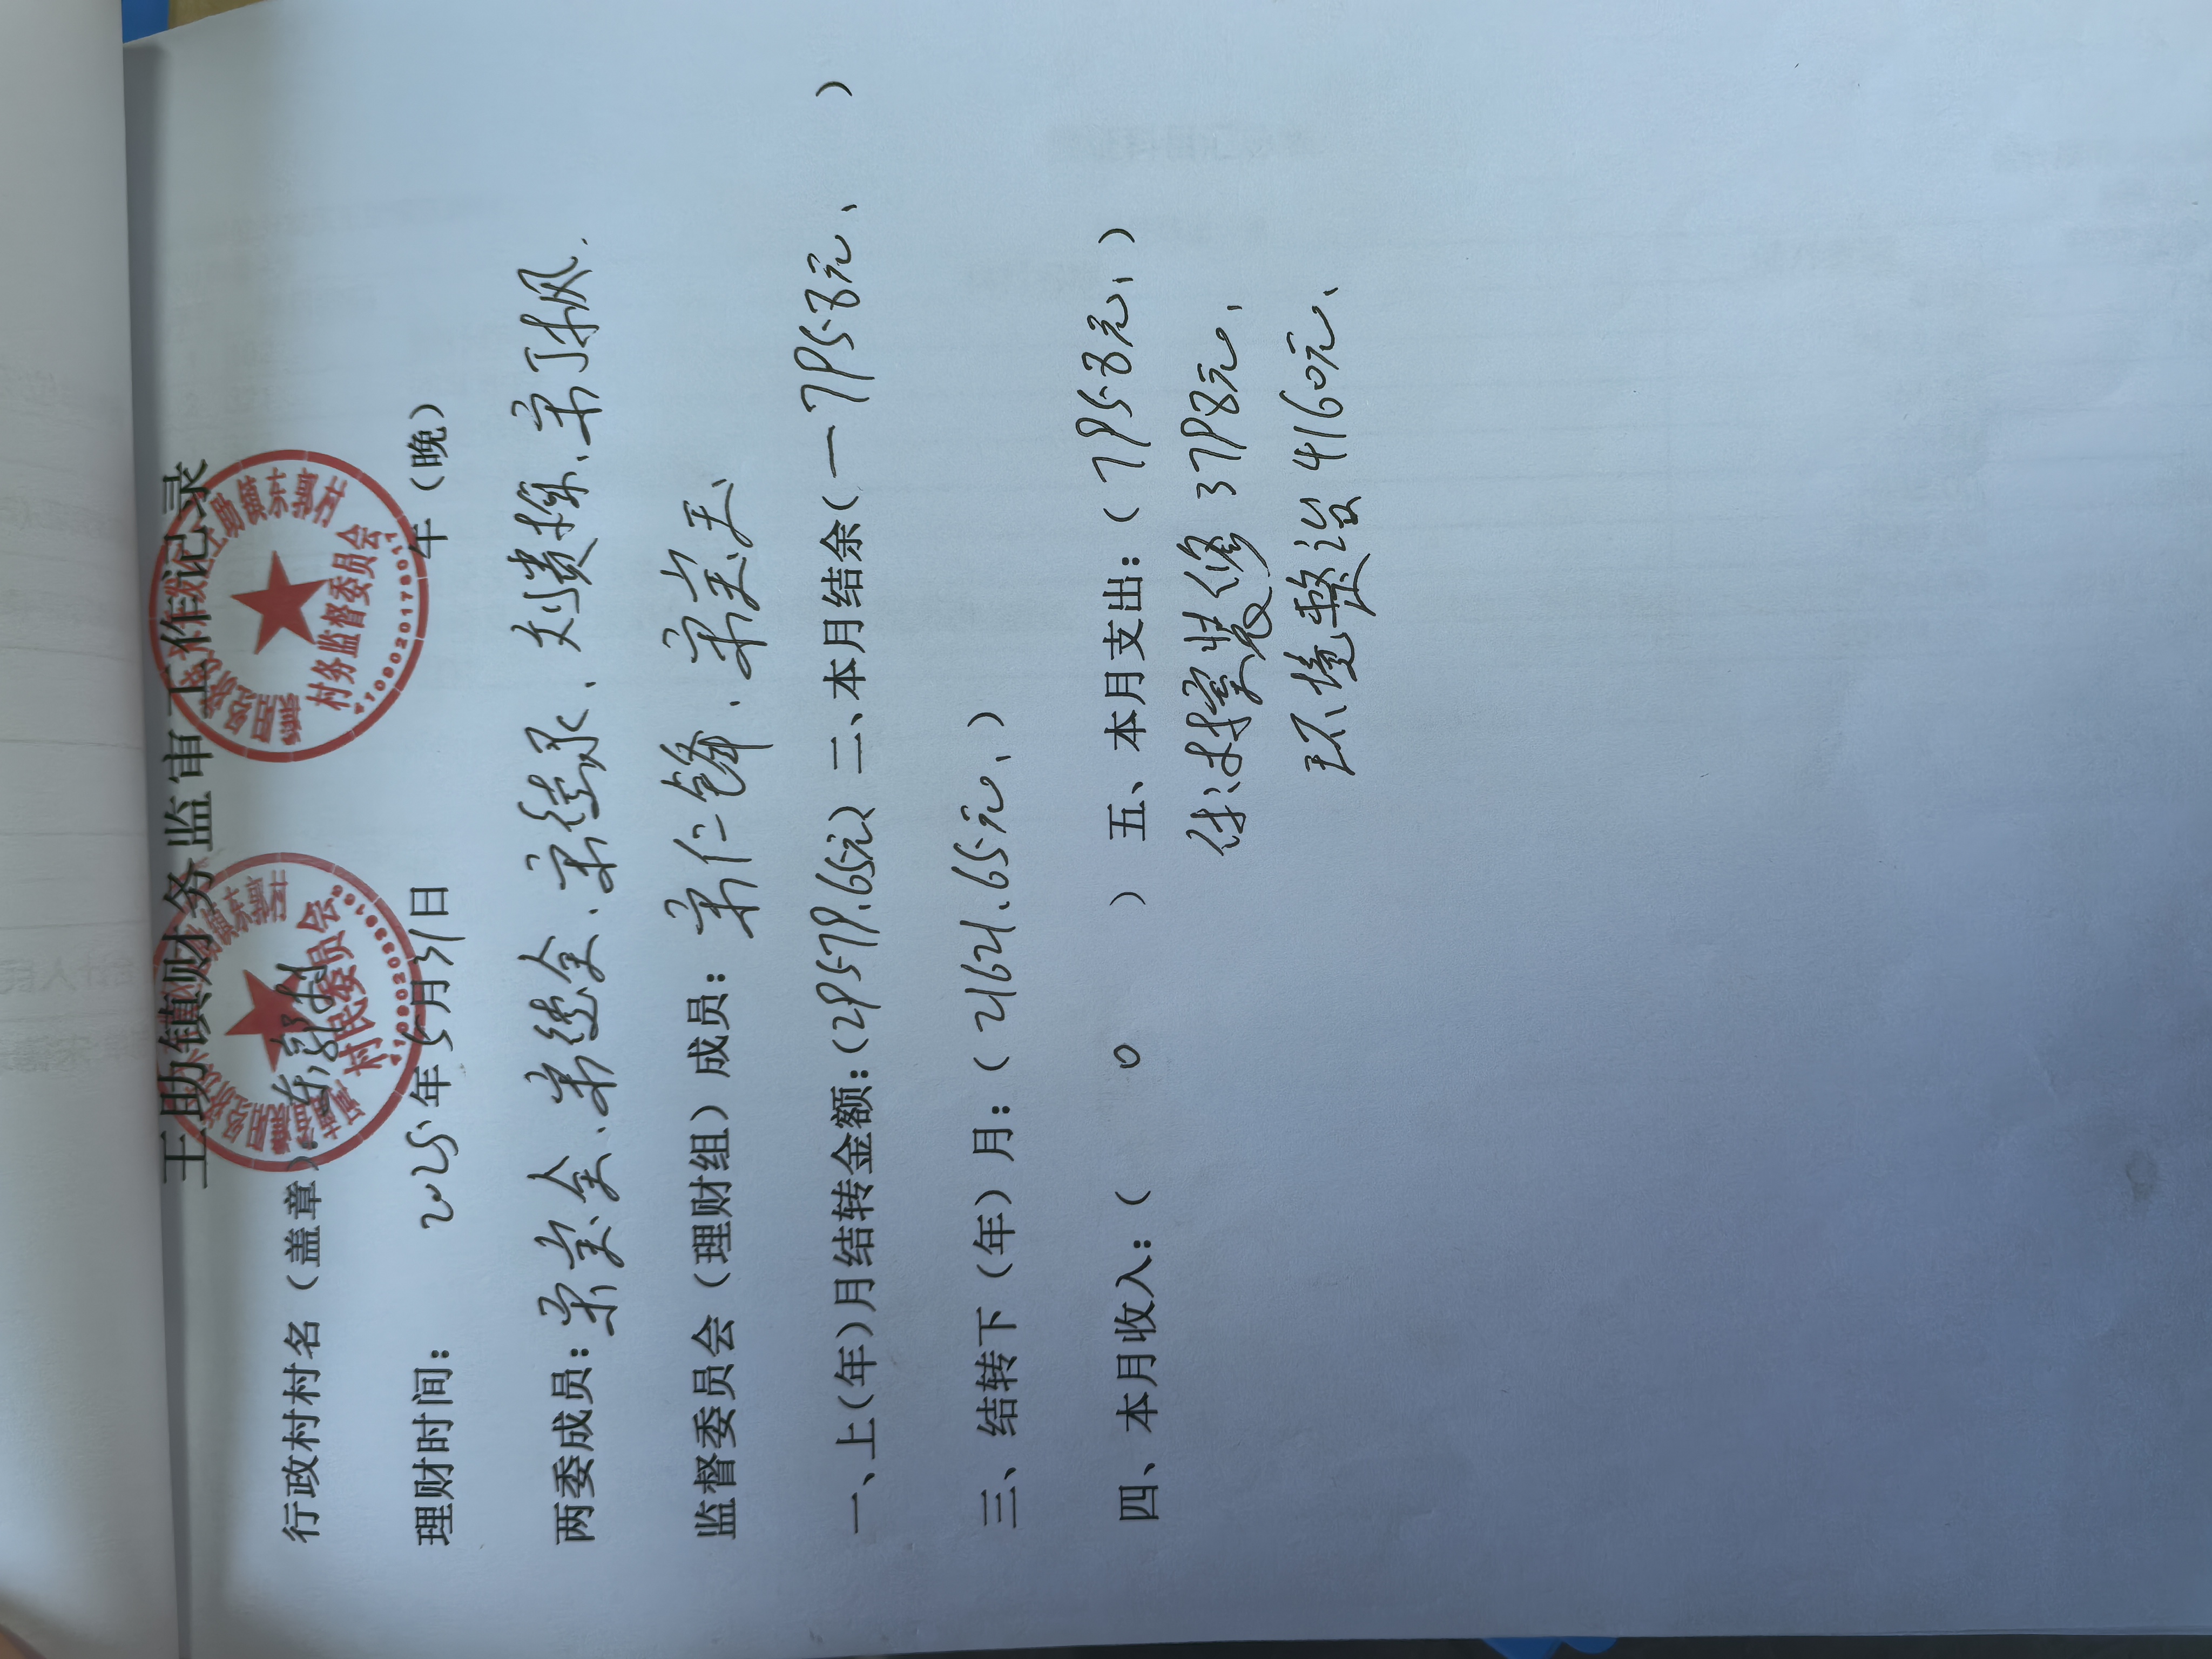 王助镇财务监审工作记录
行政村村名（盖章）：东郭村
理财时间： 2025年5月31日 午（晚）
两委成员：宋宝全、宋德全、宋德录、刘贵、宋丁枫、
监督委员会（理财组）成员：宋仁锋、宋宝玉、
一、上（年）月结转金额：（29579.65元）二、本月结余（一7958元、 ）
三、结转下（年）月：（21621.65元、）
四、本月收入：（ 0 ） 五、本月支出：（7958元、）
付：村室装修3798元、
环境整治4160元、
王助镇东郭村
村民委员会
王助镇东郭村
村务监督委员会